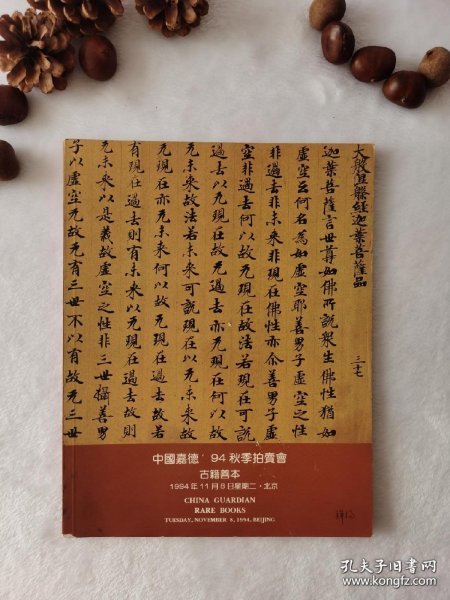 大般涅槃經迦葉菩薩品 三十七
迦葉菩薩言世尊如佛所說眾生佛性猶如
虛空云何名為如虛空耶善男子虛空之性
非過去非未來非現在佛性亦尒善男子虛
空非過去何以故无現在故法若現在可說
過去以无現在故无過去亦无現在何以故
无未來故法若未來可說現在以无未來故
无現在亦无未來何以故无現在過去故若
有現在過去則有未來以无現在過去故則
无未來以是義故虛空之性非三世攝善男
子以虛空无故无有三世不以有故无三世
中國嘉德'94秋季拍賣會
古籍善本
1994年11月8日星期二·北京
CHINA GUARDIAN
RARE BOOKS
TUESDAY, NOVEMBER 8, 1994, BEIJING
孔夫子旧书网
www.kongfz.com